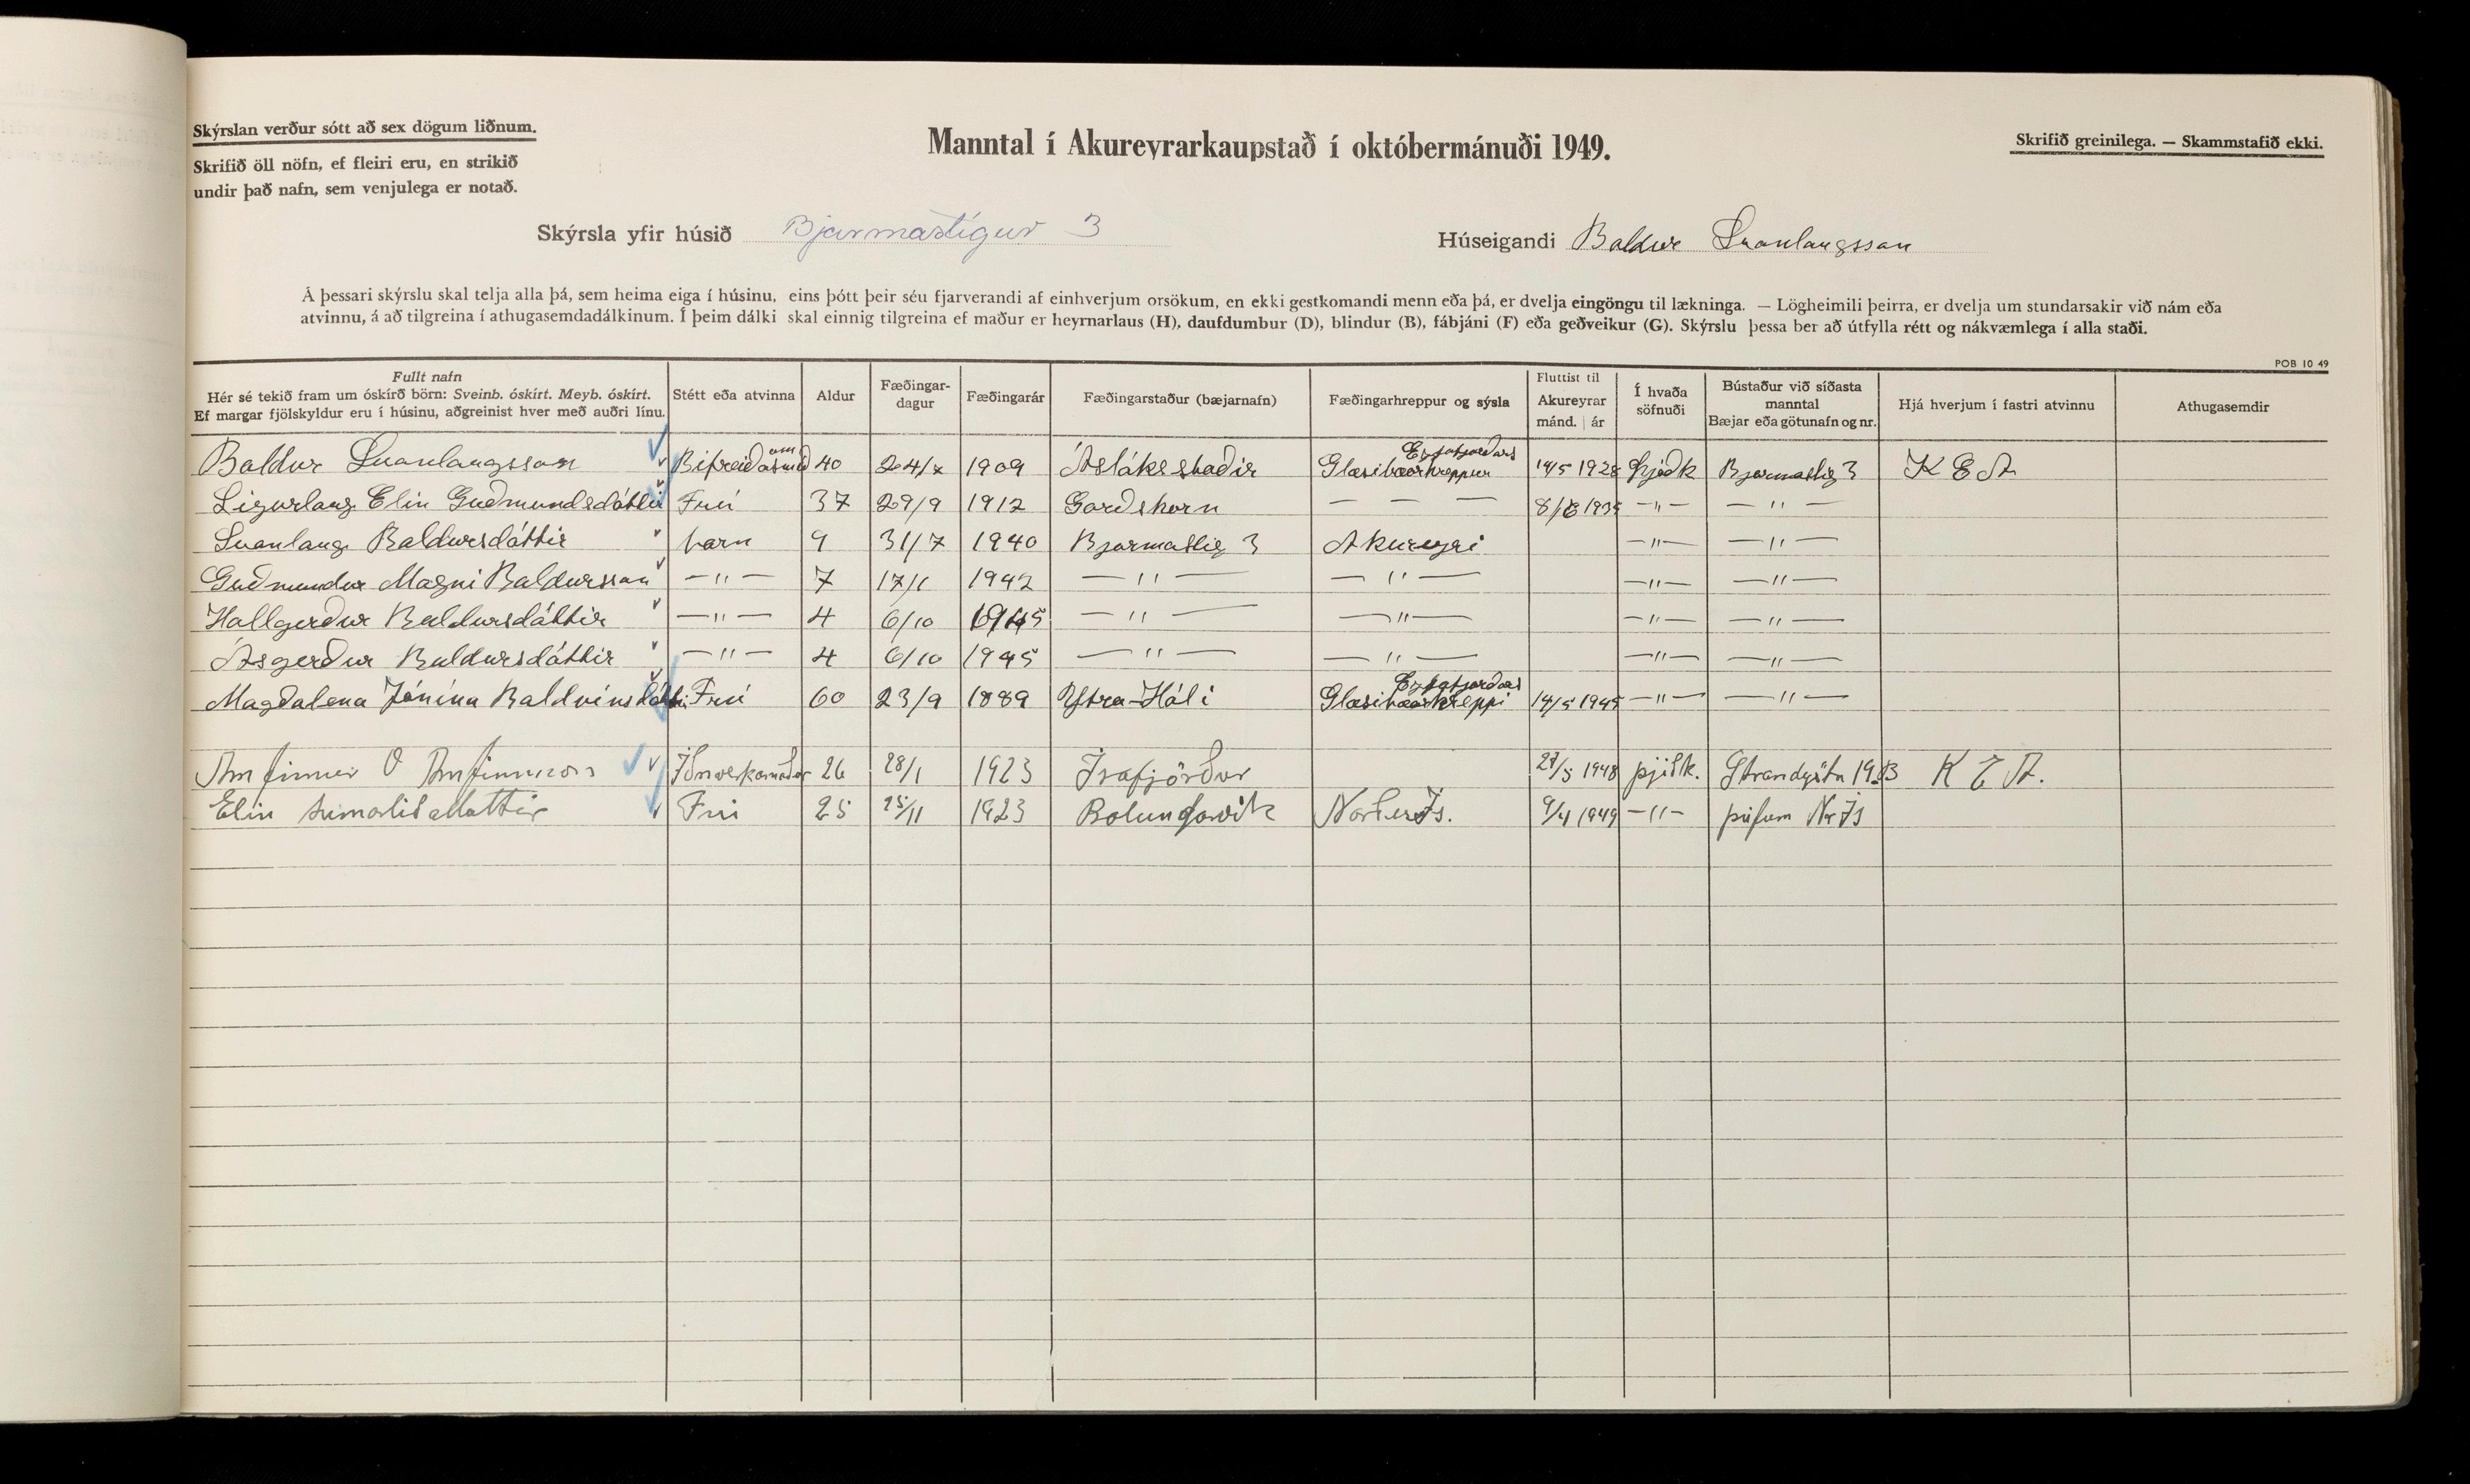 Skýrslan verður sótt að sex dögum liðnum.
Skrifið öll nöfn, ef fleiri eru, en strikið
undir það nafn, sem venjulega er notað.
Manntal í Akureyrarkaupstað í októbermánuði 1949.
Skrifið greinilega. — Skammstafið ekki.
Skýrsla yfir húsið Bjarmastígur 3
Húseigandi Baldur Svanlaugsson
Á þessari skýrslu skal telja alla þá, sem heima eiga í húsinu, eins þótt þeir séu fjarverandi af einhverjum orsökum, en ekki gestkomandi menn eða þá, er dvelja eingöngu til lækninga. — Lögheimili þeirra, er dvelja um stundarsakir við nám eða
atvinnu, á að tilgreina í athugasemdadálkinum. Í þeim dálki skal einnig tilgreina ef maður er heyrnarlaus (H), daufdumbur (D), blindur (B), fábjáni (F) eða geðveikur (G). Skýrslu þessa ber að útfylla rétt og nákvæmlega í alla staði.
POB 10 49
Fullt nafn
Hér sé tekið fram um óskírð börn: Sveinb. óskírt. Meyb. óskírt.
Ef margar fjölskyldur eru í húsinu, aðgreinist hver með auðri línu.
Stétt eða atvinna
Aldur
Fæðingar-
dagur
Fæðingarár
Fæðingarstaður (bæjarnafn)
Fæðingarhreppur og sýsla
Fluttist til
Akureyrar
mánd. | ár
Í hvaða
söfnuði
Bústaður við síðasta
manntal
Bæjar eða götunafn og nr.
Hjá hverjum í fastri atvinnu
Athugasemdir
Baldur Svanlaugsson Bifreiðasmið 40 24/7 1909 Ásláksstaðir Glæsibæarhreppur Eyjafjarðars 14/5 1928 þjóðk Bjarmastig 3 K E A
Sigurlaug Elin Guðmundsdóttir Frú 37 29/9 1912 Garðshorn — — — 1935 —"— —"—
Svanlaug Baldursdóttir barn 9 31/7 1940 Bjarmastig 3 Akureyri —"— —"—
Guðmundur Magni Baldursson —"— 7 17/1 1942 —"— —"— —"— —"—
Hallgerður Baldursdóttir —"— 4 6/10 1945 —"— —"— —"— —"—
Ásgerður Baldursdóttir —"— 4 6/10 1945 —"— —"— —"— —"—
Magðalena Jónína Baldvinsdóttir Frú 60 23/9 1889 Ytra-Hóli Glæsibæarhreppi Eyjafjarðars 14/5 1945 —"— —"—
Arnfinnur O Arnfinnsson Iðnverkamaður 26 28/1 1923 Ísafjörður 1948 þjóðk. Strandgötu 19B K E A.
Elin Frú 25 25/11 1923 Bolungavik Norður Ís. 9/4 1949 —"— þúfum Nr Ís